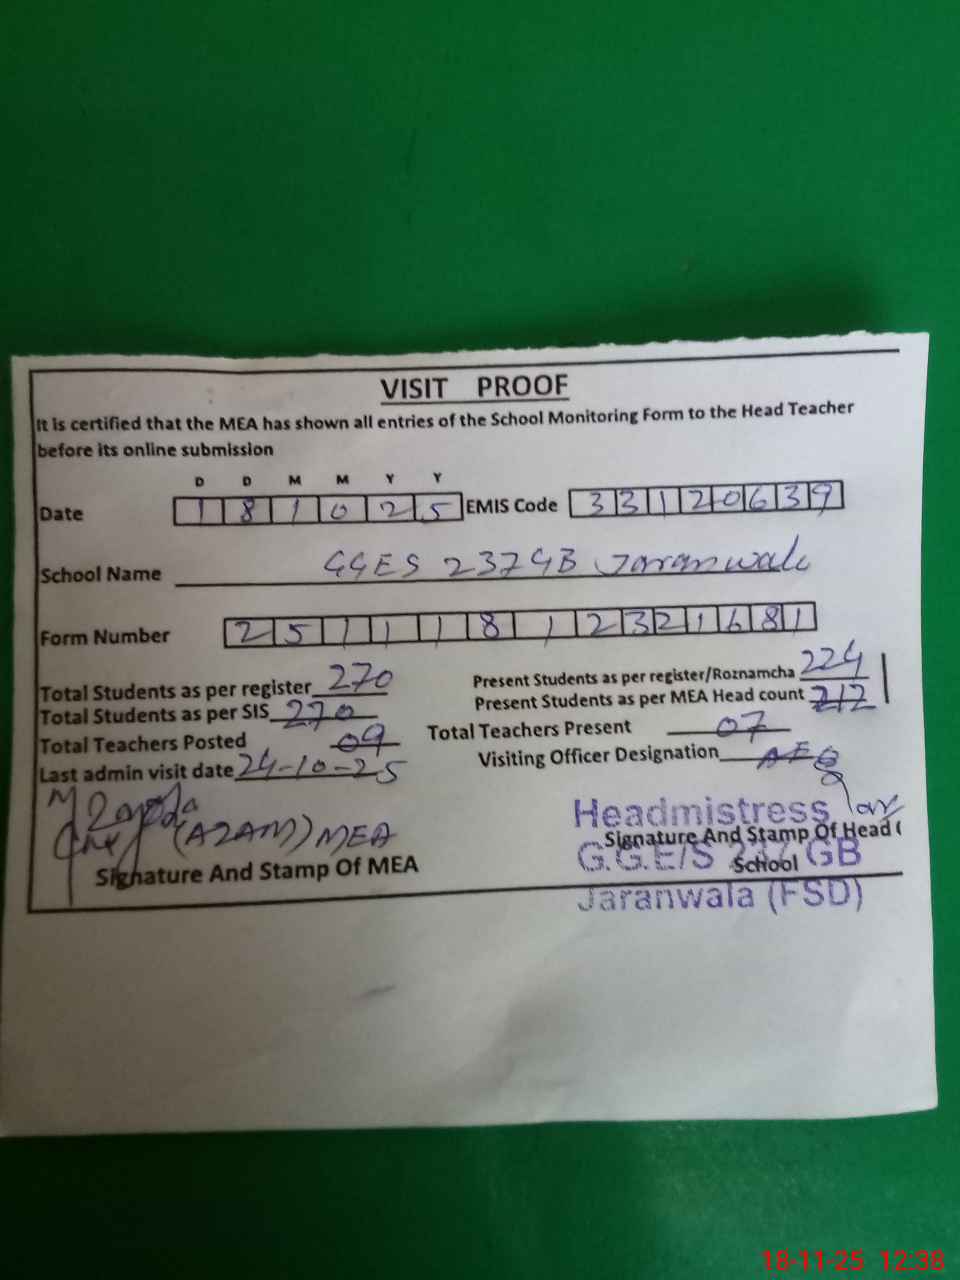 VISIT PROOF
It is certified that the MEA has shown all entries of the School Monitoring Form to the Head Teacher
before its online submission
D D M M Y Y
Date 1 8 1 0 2 5 EMIS Code 3 3 1 2 0 6 3 9
School Name GGES 237GB Jaranwala
Form Number 2 5 1 1 1 8 1 2 3 2 1 6 8 1
Total Students as per register 270 Present Students as per register/Roznamcha 224
Total Students as per SIS 270 Present Students as per MEA Head count 212
Total Teachers Posted 09 Total Teachers Present 07
Last admin visit date 24-10-25 Visiting Officer Designation AEO
(AZAM) MEA
Signature And Stamp Of MEA
Headmistress
Signature And Stamp Of Head
School
G.G.E/S 237 GB
Jaranwala (FSD)
18-11-25 12:38